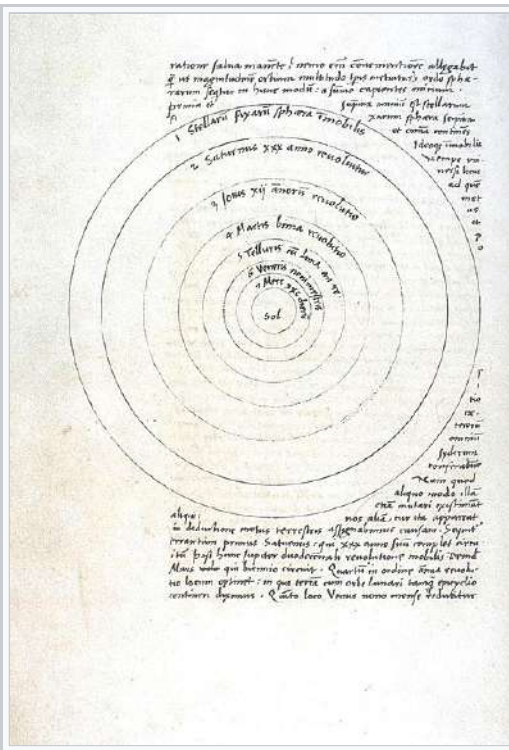 ratione salua manente, nemo em̄ conuenientiorē allegabit
q̄ ut magnitudinē orbium multitudo tp̄is metiatur, ordo sphæ-
rarum sequitur in hunc modū: a sum̄o capientes initium.
prima et suprema omniū est stellarum
fixarum sphæra seipsam
et omīa continēs
1 Stellarū fixarū sphæra īmobilis
Ideoq̄ īmobilis
2 Saturnus xxx anno reuoluitur
nempe vni
uersi locus
3 Iouis xij annorū reuolutio
ad quē
mot
us
et
4 Martis bima reuolutio
5 Telluris cū luna an re
6 Veneris nonimestris
7 Merc xxc dierū
Sol
tio
ce-
terorū
omniū
syderum
conferatur
Nam quod
aliquo modo illā
etiā mutari existimāt
aliqui: nos aliā, cur ita appareat
in deductione motus terrestris assignabimus causam. Sequit
errantium primus Saturnus: qui xxx anno suū complet circu
itū post hunc Jupiter duodecennali reuolutione mobilis. Demū
Mars qui biennio circuit. Quartū in ordine ānua reuolu-
tio locum optinet: in quo terrā cum orbe lunari tamq̄ epicyclio
contineri diximus. Quīto loco Venus nono mense reducitur